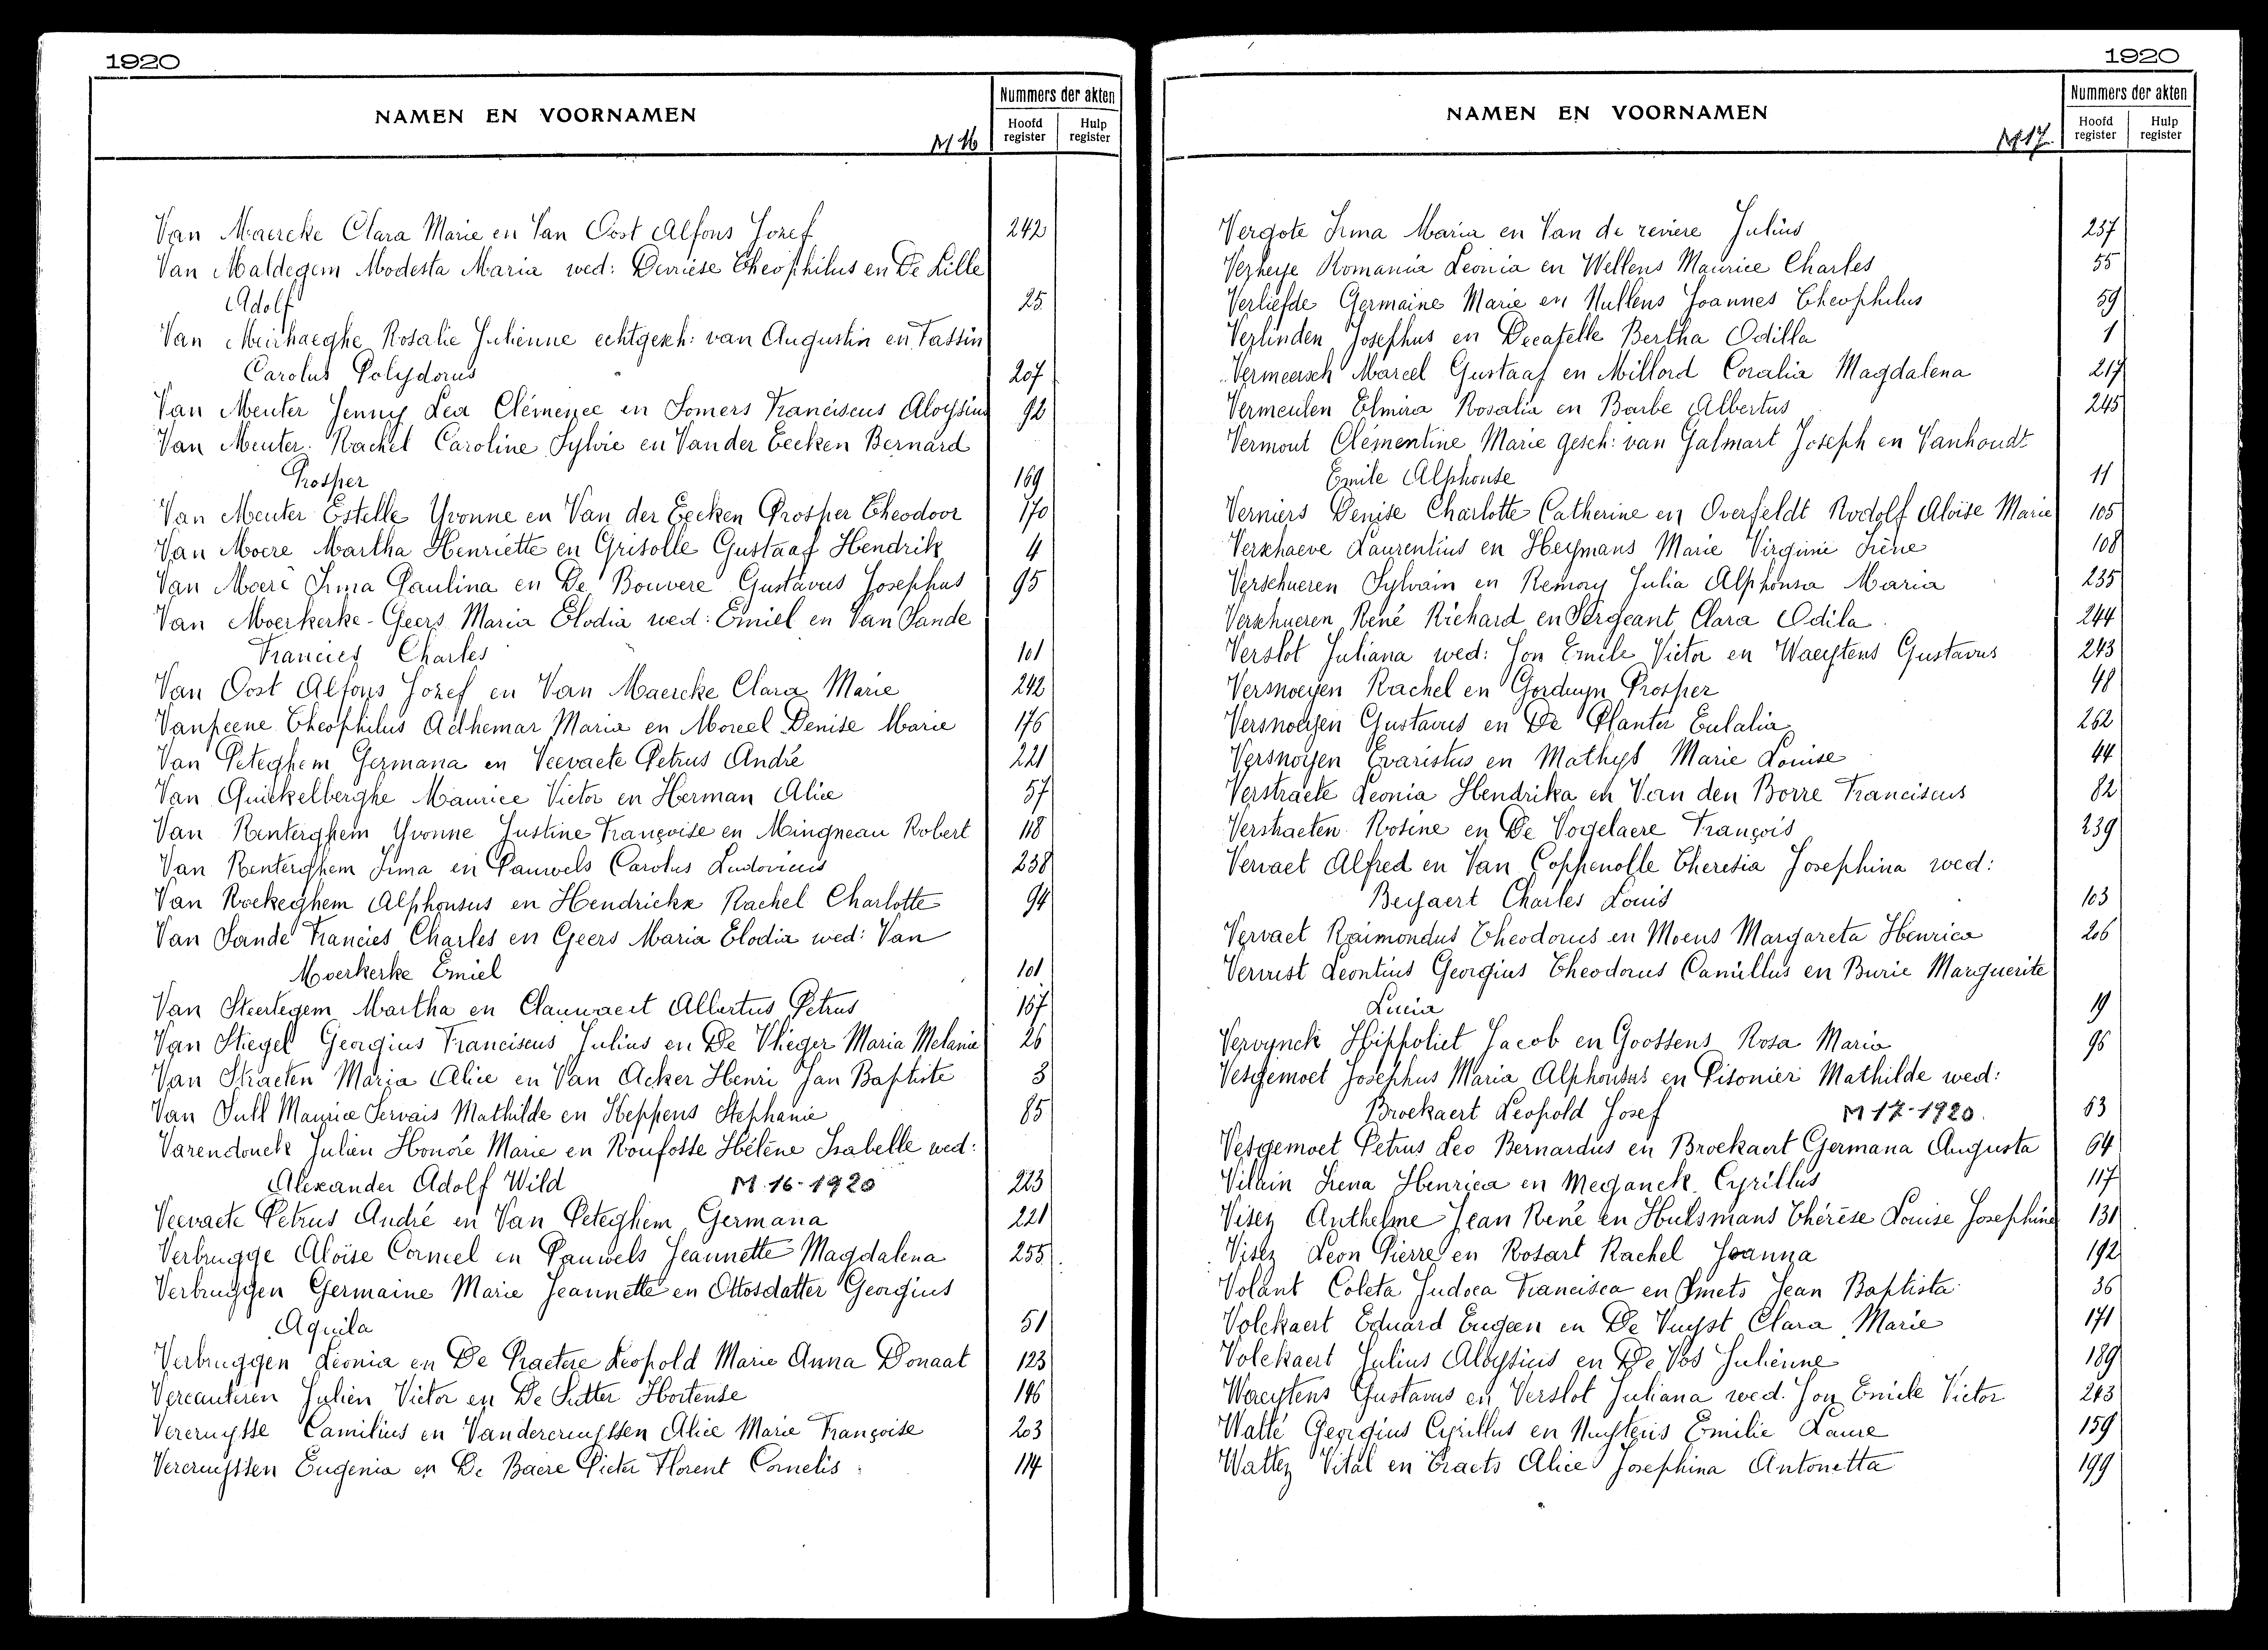 1920
NAMEN EN VOORNAMEN
M 16
Nummers der akten
Hoofd register
Hulp register
Van Maercke Clara Marie en Van Oost Alfons Jozef 242
Van Maldegem Modesta Maria wed: Devriese Theophilus en De Lille
Adolf 25
Van Meirhaeghe Rosalie Julienne echtgesch: van Augustin en Tassin
Carolus Polydorus 207
Van Meuter Jenny Lea Clémence en Somers Franciscus Aloysius 92
Van Meuter Rachel Caroline Sylvie en Van der Eecken Bernard
Prosper 169
Van Meuter Estelle Yvonne en Van der Eecken Prosper Theodoor 170
Van Moere Martha Henriette en Grisolle Gustaaf Hendrik 4
Van Moere Irma Paulina en De Bouvere Gustavus Josephus 95
Van Moerkerke-Geers Maria Elodia wed: Emiel en Van Sande
Francies Charles 101
Van Oost Alfons Jozef en Van Maercke Clara Marie 242
Vanpeene Theophilus Adhemar Maria en Moreel Denise Marie 176
Van Peteghem Germana en Veevaete Petrus André 221
Van Quickelberghe Maurice Victor en Herman Alice 57
Van Renterghem Yvonne Justine Françoise en Mingneau Robert 118
Van Renterghem Irma en Pauwels Carolus Ludovicus 238
Van Roekeghem Alphonsus en Hendrickx Rachel Charlotte 94
Van Sande Francies Charles en Geers Maria Elodia wed: Van
Moerkerke Emiel 101
Van Steertegem Martha en Clauwaert Albertus Petrus 167
Van Stiegel Georgius Franciscus Julius en De Vlieger Maria Melanie 26
Van Straeten Maria Alice en Van Acker Henri Jan Baptiste 3
Van Sull Maurice Servais Mathilde en Heppens Stephanie 85
Varendonck Julien Honoré Marie en Ronfosse Hélène Isabelle wed:
Alexander Adolf Wild M.16-1920 223
Veevaete Petrus André en Van Peteghem Germana 221
Verbrugge Aloïse Corneel en Pauwels Jeannette Magdalena 255
Verbruggen Germaine Marie Jeannette en Ottosdatter Georgius
Aquila 51
Verbruggen Leonia en De Praetere Leopold Marie Anna Donaat 123
Vercauteren Julien Victor en De Sutter Hortense 146
Vercruysse Camilius en Vandercruyssen Alice Marie Françoise 203
Vercruyssen Eugenia en De Baere Pieter Florent Cornelis 114
1920
NAMEN EN VOORNAMEN
M 17
Nummers der akten
Hoofd register
Hulp register
Vergote Irma Maria en Van de reviere Julius 237
Verheye Romania Leonia en Wellens Maurice Charles 55
Verliefde Germaine Marie en Mullens Joannes Theophilus 59
Verlinden Josephus en Decapelle Bertha Odilla 1
Vermeersch Marcel Gustaaf en Millord Coralia Magdalena 217
Vermeulen Elmira Rosalia en Barbe Albertus 245
Vermout Clémentine Marie gesch: van Galmart Joseph en Vanhoudt
Emile Alphonse 11
Verniers Denise Charlotte Catherine en Overfeldt Rodolf Aloïse Marie 105
Verschaeve Laurentius en Heymans Marie Virginie Irène 108
Verschueren Sylvain en Remory Julia Alphonsa Maria 235
Verschueren René Richard en Sergeant Clara Odila 244
Verslot Juliana wed: Jon Emile Victor en Waeytens Gustavus 243
Versnoeyen Rachel en Gorduyn Prosper 48
Versnoeyen Gustavus en De Planter Eulalia 262
Versnoyen Evaristus en Mathys Marie Louise 44
Verstraete Leonia Hendrika en Van den Borre Franciscus 82
Verstraeten Rosine en De Vogelaere François 239
Vervaet Alfred en Van Coppenolle Theresia Josephina wed:
Beyaert Charles Louis 103
Vervaet Raimondus Theodorus en Moens Margareta Henrica 206
Vervust Leontius Georgius Theodorus Camillus en Burie Marguerite
Lucia 19
Vervynck Hippoliet Jacob en Goossens Rosa Maria 96
Vesgemoet Josephus Maria Alphonsus en Pisonier Mathilde wed:
Broekaert Leopold Josef M 17-1920 63
Vesgemoet Petrus Leo Bernardus en Broekaert Germana Augusta 64
Vilain Irena Henrica en Meganck Cyrillus 117
Visez Anthelme Jean René en Hulsmans Thérèse Louise Josephine 131
Visez Leon Pierre en Rosart Rachel Joanna 192
Volant Coleta Judoca Francisca en Smets Jean Baptista 36
Volckaert Eduard Eugeen en De Vuyst Clara Marie 171
Volckaert Julius Aloysius en De Vos Julienne 189
Waeytens Gustavus en Verslot Juliana wed. Jon Emile Victor 243
Wallé Georgius Cyrillus en Nuytens Emilie Laure 159
Wattez Vital en Eraets Alice Josephina Antonetta 199